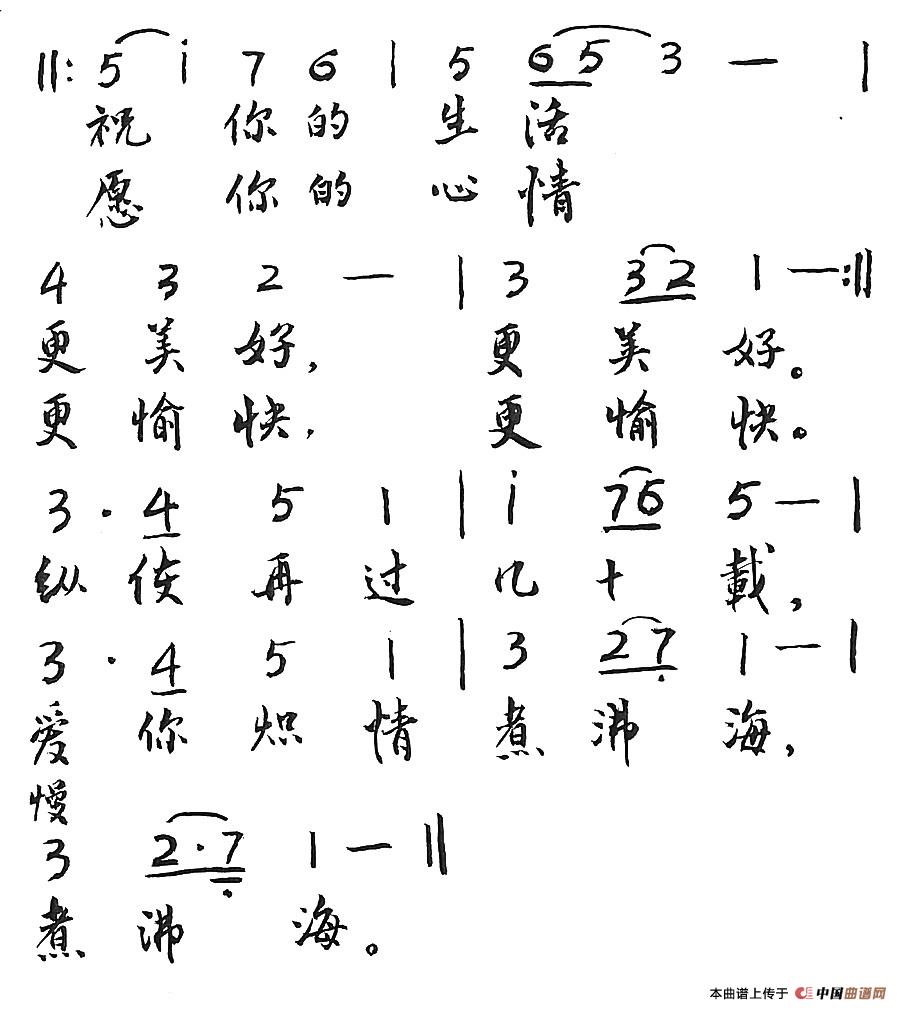 ‖: 5 i 7 6 | 5 6 5 3 — |
祝 你 的 生 活
愿 你 的 心 情
4 3 2 — | 3 3 2 1 — :‖
更 美 好, 更 美 好。
更 愉 快, 更 愉 快。
3 · 4 5 1 | i 7 6 5 — |
纵 使 再 过 几 十 載,
3 · 4 5 1 | 3 2 7 1 — |
爱 你 炽 情 煮 沸 海,
慢
3 2 · 7 1 — ‖
煮 沸 海。
本曲谱上传于 中国曲谱网